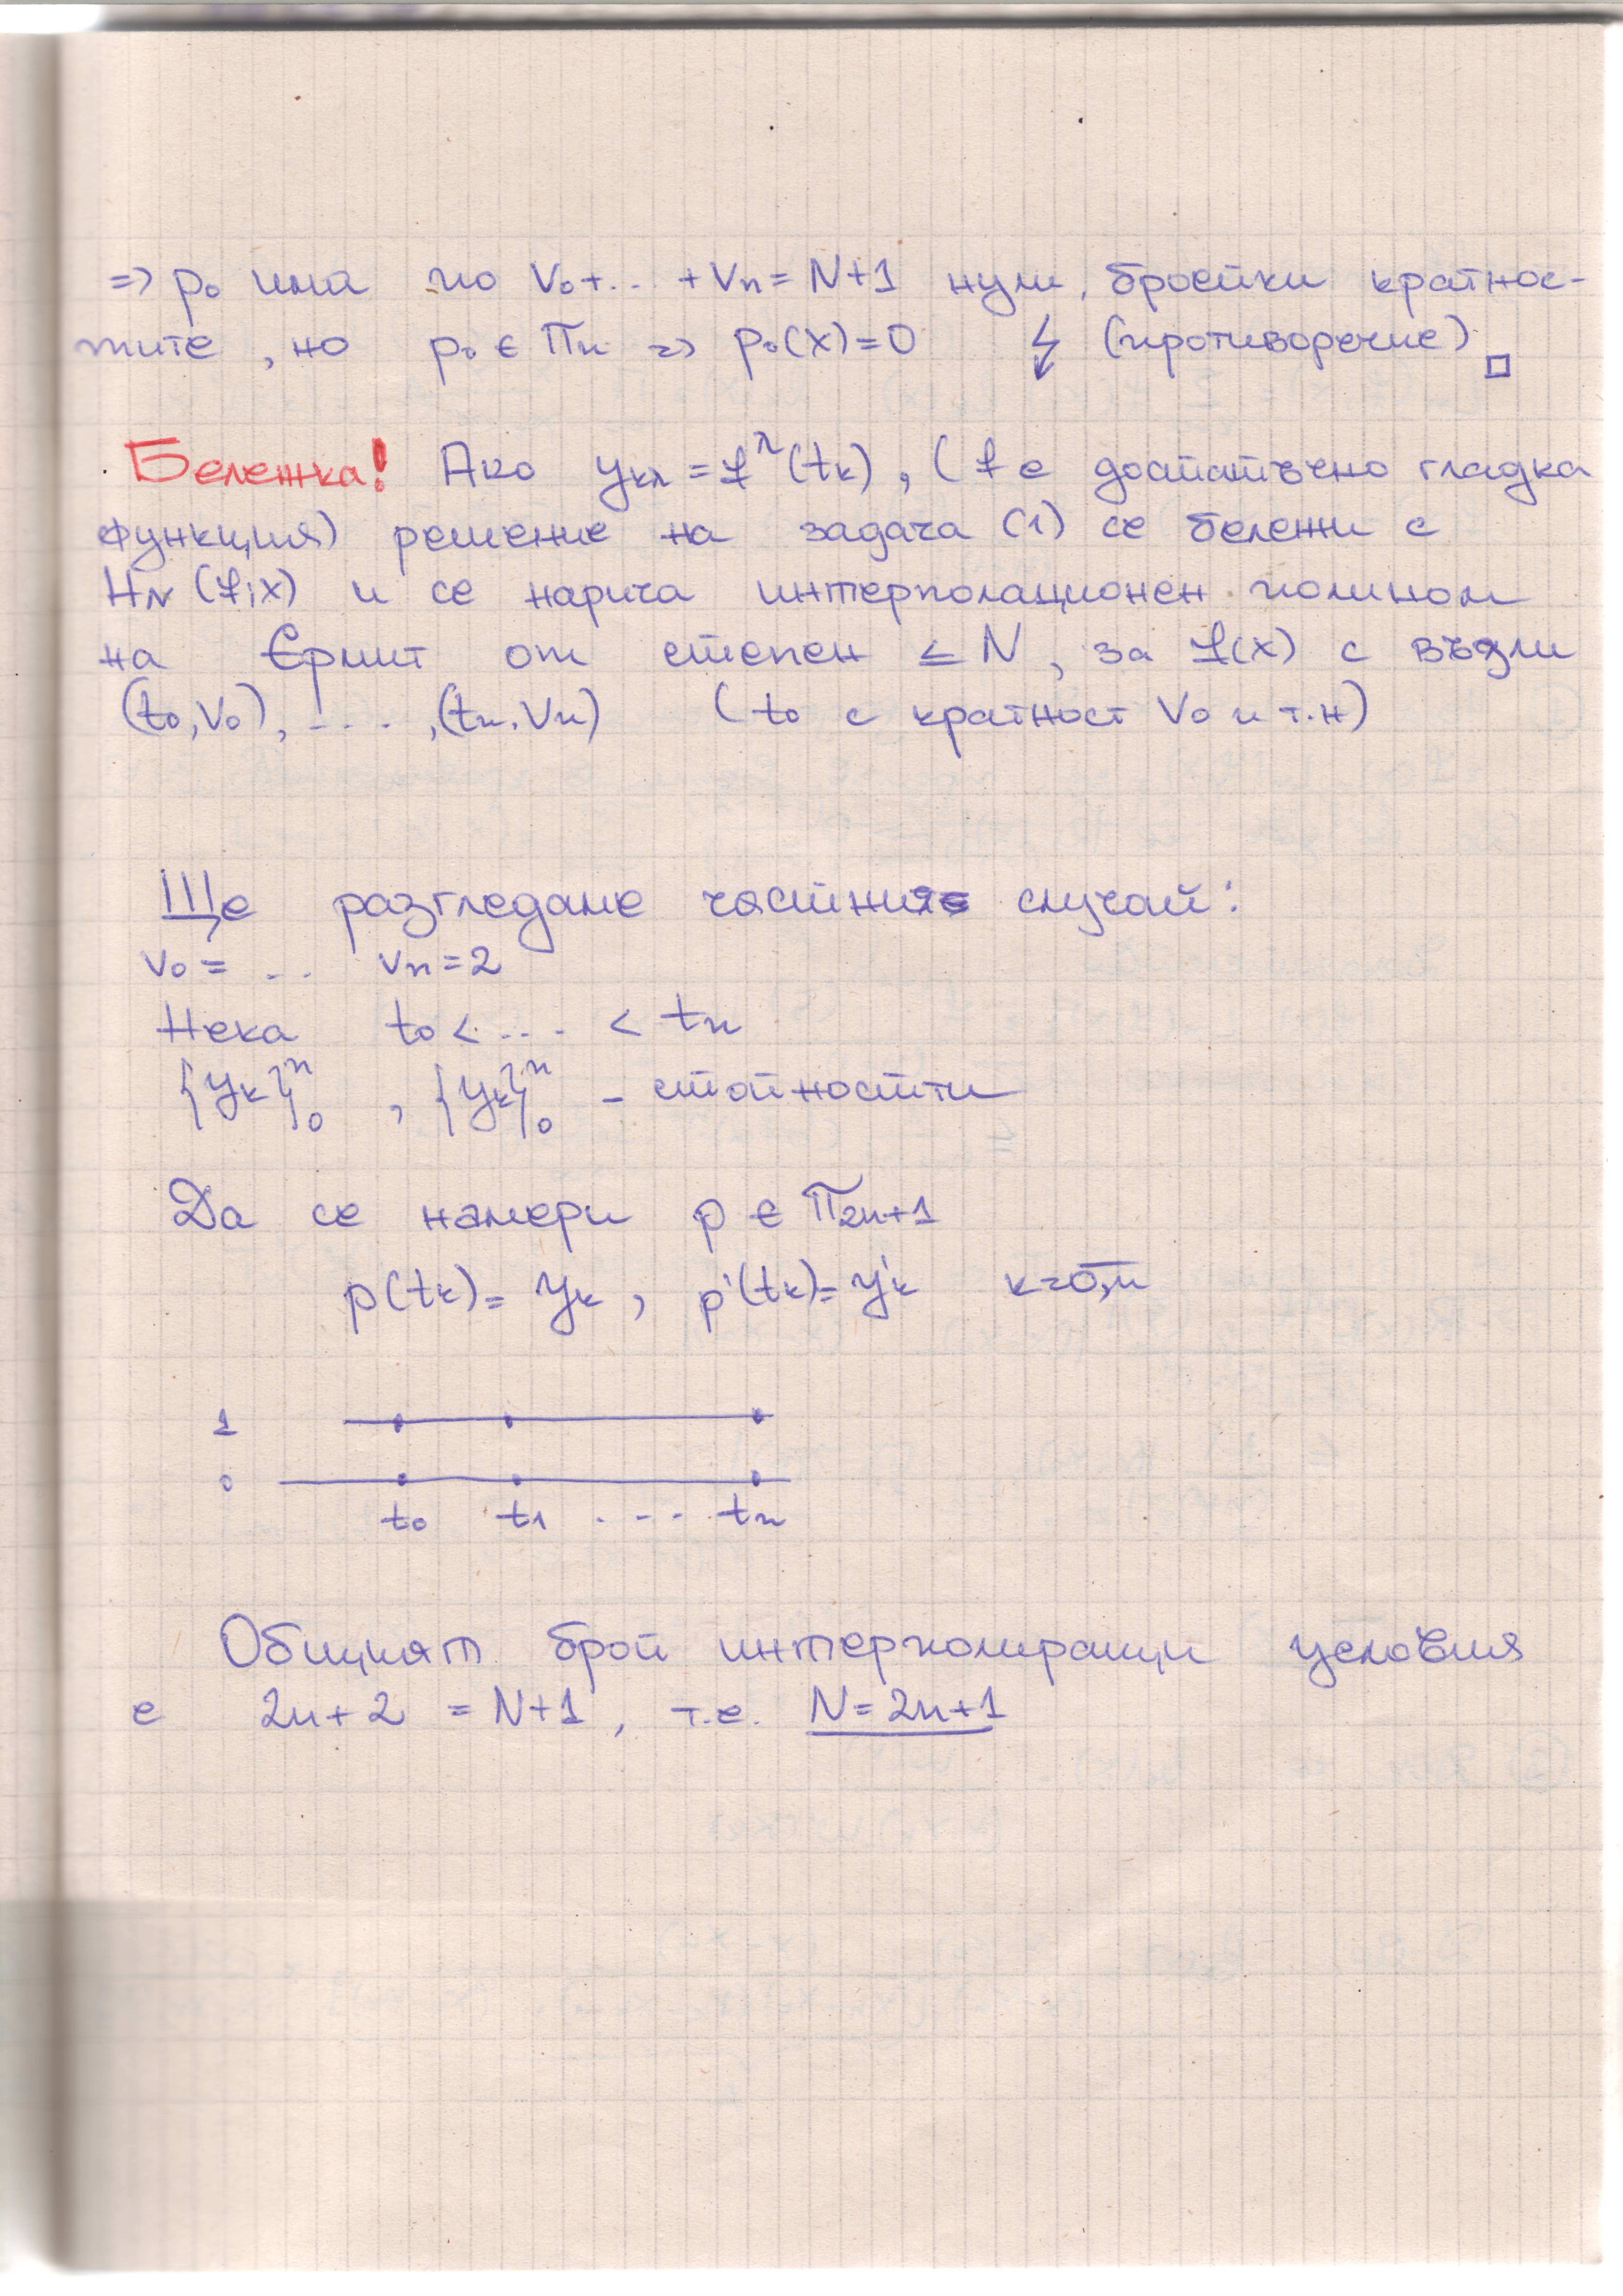 => p₀ има по ν₀+... +νₙ = N+1 нули, броейки кратнос-
тите, но p₀ ∈ Πₙ => p₀(x)=0 ↯ (противоречие) □
Бележка! Ако yₖλ = f^λ(tₖ), (f е достатъчно гладка
функция) решение на задача (1) се бележи с
H_N (f;x) и се нарича интерполационен полином
на Ермит от степен ≤ N, за f(x) с възли
(t₀,ν₀), ...., (tₙ,νₙ) (t₀ с кратност ν₀ и т.н)
Ще разгледаме частния случай:
ν₀ = ... νₙ = 2
Нека t₀ < .... < tₙ
{yₖ}₀ⁿ , {yₖ}₀ⁿ - стойности
Да се намери p ∈ Π₂ₙ₊₁
p(tₖ) = yₖ , p'(tₖ) = y'ₖ k=0,n
1
0
t₀ t₁ .... tₙ
Общият брой интерполиращи условия
е 2n+2 = N+1, т.е. N = 2n+1